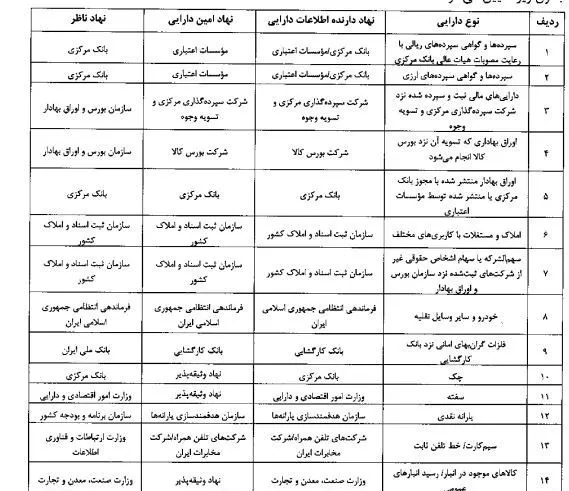 ردیف | نوع دارایی | نهاد دارنده اطلاعات دارایی | نهاد امین دارایی | نهاد ناظر
۱ | سپرده‌ها و گواهی سپرده‌های ریالی با رعایت مصوبات هیات عالی بانک مرکزی | بانک مرکزی/مؤسسات اعتباری | مؤسسات اعتباری | بانک مرکزی
۲ | سپرده‌ها و گواهی سپرده‌های ارزی | بانک مرکزی/مؤسسات اعتباری | مؤسسات اعتباری | بانک مرکزی
۳ | دارایی‌های مالی ثبت و سپرده شده نزد شرکت سپرده‌گذاری مرکزی و تسویه وجوه | شرکت سپرده‌گذاری مرکزی و تسویه وجوه | شرکت سپرده‌گذاری مرکزی و تسویه وجوه | سازمان بورس و اوراق بهادار
۴ | اوراق بهاداری که تسویه آن نزد بورس کالا انجام می‌شود | شرکت بورس کالا | شرکت بورس کالا | سازمان بورس و اوراق بهادار
۵ | اوراق بهادار منتشر شده با مجوز بانک مرکزی یا منتشر شده توسط مؤسسات اعتباری | بانک مرکزی | بانک مرکزی | بانک مرکزی
۶ | املاک و مستغلات با کاربری‌های مختلف | سازمان ثبت اسناد و املاک کشور | سازمان ثبت اسناد و املاک کشور | سازمان ثبت اسناد و املاک کشور
۷ | سهم‌الشرکه یا سهام اشخاص حقوقی غیر از شرکت‌های ثبت‌شده نزد سازمان بورس و اوراق بهادار | سازمان ثبت اسناد و املاک کشور | سازمان ثبت اسناد و املاک کشور | سازمان ثبت اسناد و املاک کشور
۸ | خودرو و سایر وسایل نقلیه | فرماندهی انتظامی جمهوری اسلامی ایران | فرماندهی انتظامی جمهوری اسلامی ایران | فرماندهی انتظامی جمهوری اسلامی ایران
۹ | فلزات گران‌بهای امانی نزد بانک کارگشایی | بانک کارگشایی | بانک کارگشایی | بانک ملی ایران
۱۰ | چک | بانک مرکزی | نهاد وثیقه‌پذیر | بانک مرکزی
۱۱ | سفته | وزارت امور اقتصادی و دارایی | نهاد وثیقه‌پذیر | وزارت امور اقتصادی و دارایی
۱۲ | یارانه نقدی | سازمان هدفمندسازی یارانه‌ها | سازمان هدفمندسازی یارانه‌ها | سازمان برنامه و بودجه کشور
۱۳ | سیم‌کارت/ خط تلفن ثابت | شرکت‌های تلفن همراه/شرکت مخابرات ایران | شرکت‌های تلفن همراه/شرکت مخابرات ایران | وزارت ارتباطات و فناوری اطلاعات
۱۴ | کالاهای موجود در انبار/ رسید انبارهای عمومی | وزارت صنعت، معدن و تجارت | نهاد وثیقه‌پذیر | وزارت صنعت، معدن و تجارت